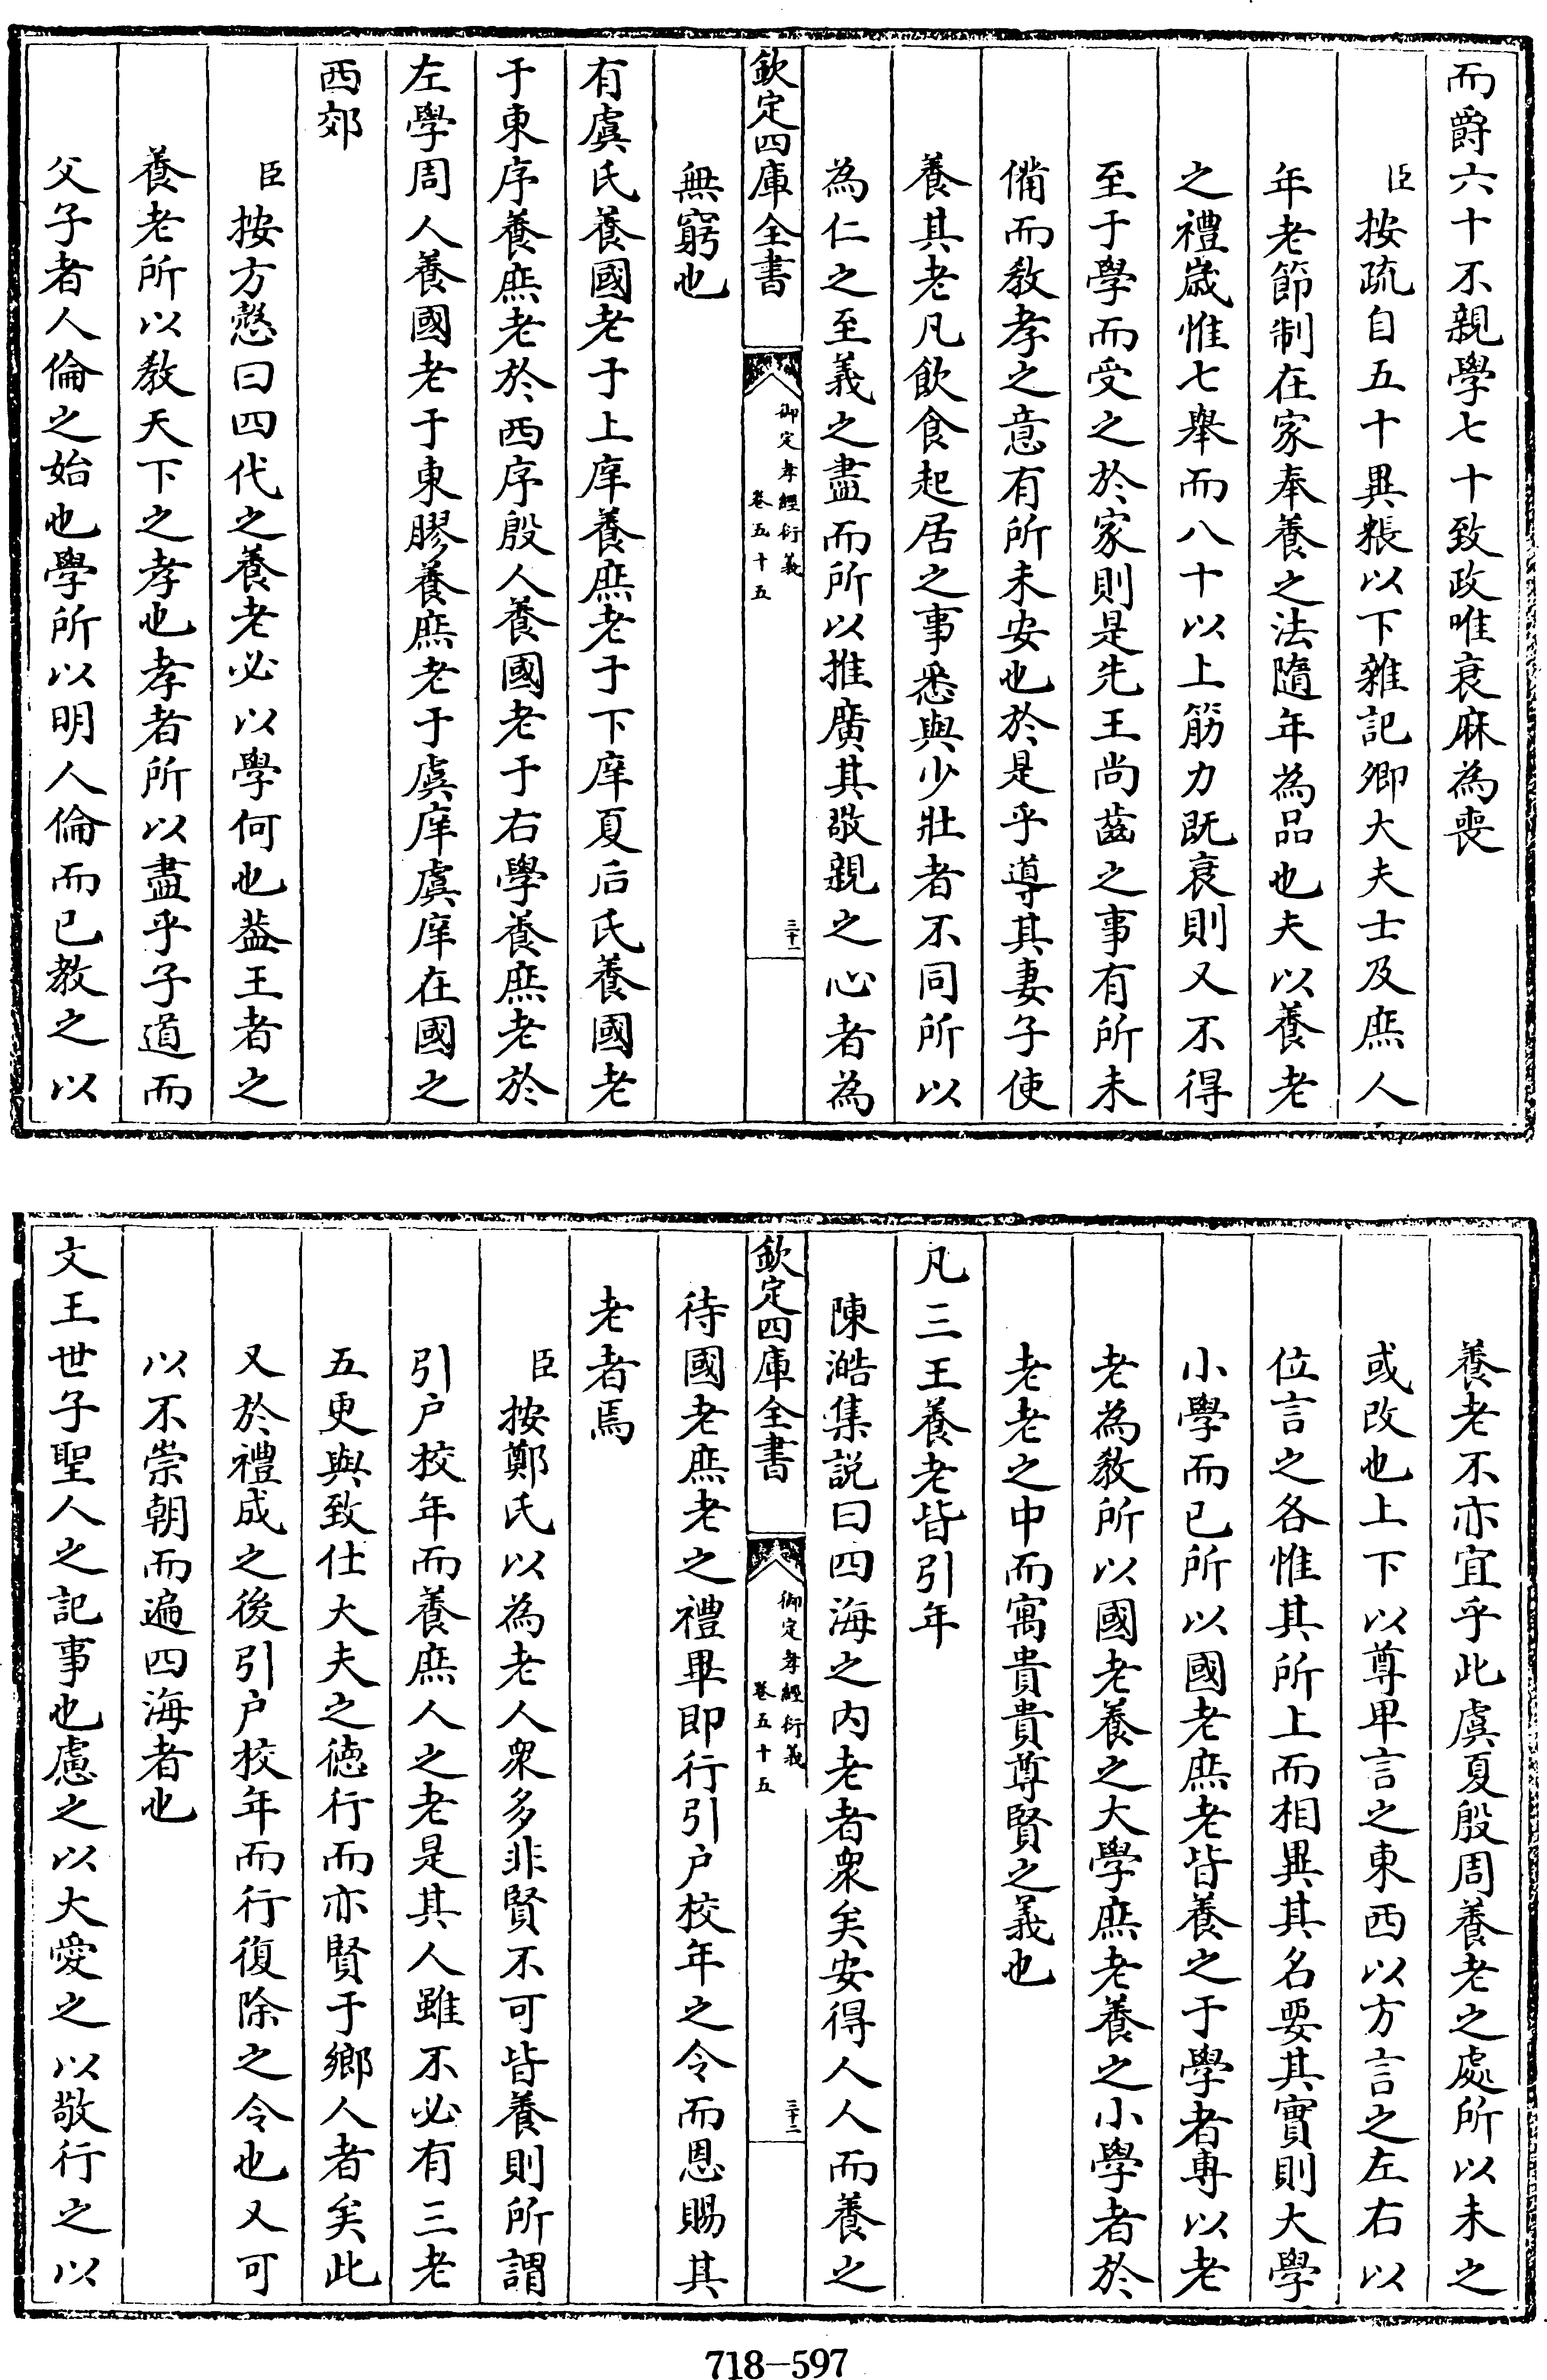 而爵六十不親學七十致政唯衰麻為喪
臣按疏自五十異粻以下雜記卿大夫士及庶人
年老節制在家奉養之法隨年為品也夫以養老
之禮歲惟七舉而八十以上筋力既衰則又不得
至于學而受之於家則是先王尚齒之事有所未
備而教孝之意有所未安也於是乎導其妻子使
養其老凡飲食起居之事悉與少壯者不同所以
為仁之至義之盡而所以推廣其敬親之心者為
欽定四庫全書
御定孝經衍義
卷五十五
三十一
無窮也
有虞氏養國老于上庠養庶老于下庠夏后氏養國老
于東序養庶老於西序殷人養國老于右學養庶老於
左學周人養國老于東膠養庶老于虞庠虞庠在國之
西郊
臣按方慤曰四代之養老必以學何也葢王者之
養老所以教天下之孝也孝者所以盡乎子道而
父子者人倫之始也學所以明人倫而已教之以
養老不亦宜乎此虞夏殷周養老之處所以未之
或改也上下以尊卑言之東西以方言之左右以
位言之各惟其所上而相異其名要其實則大學
小學而已所以國老庶老皆養之于學者專以老
老為教所以國老養之大學庶老養之小學者於
老老之中而寓貴貴尊賢之義也
凡三王養老皆引年
陳澔集説曰四海之內老者衆矣安得人人而養之
欽定四庫全書
御定孝經衍義
卷五十五
三十二
待國老庶老之禮畢即行引户校年之令而恩賜其
老者焉
臣按鄭氏以為老人衆多非賢不可皆養則所謂
引户校年而養庶人之老是其人雖不必有三老
五更與致仕大夫之德行而亦賢于鄉人者矣此
又於禮成之後引户校年而行復除之令也又可
以不崇朝而遍四海者也
文王世子聖人之記事也慮之以大愛之以敬行之以
718-597